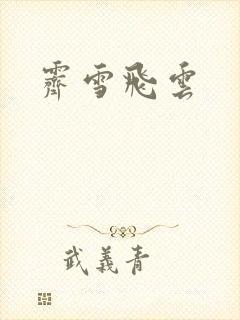 霽雪飛雲
武義青